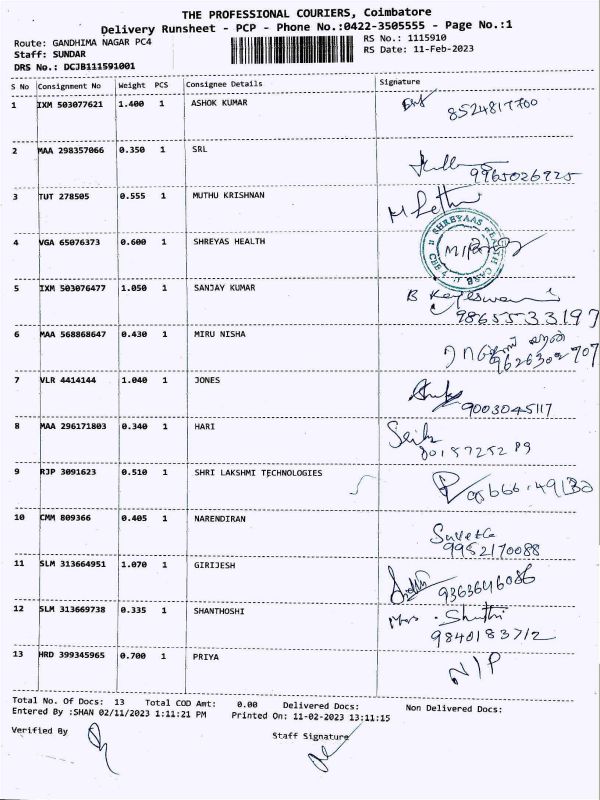 THE PROFESSIONAL COURIERS, Coimbatore
Delivery Runsheet - PCP - Phone No.:0422-3505555 - Page No.:1
Route: GANDHIMA NAGAR PC4
RS No.: 1115910
Staff: SUNDAR
RS Date: 11-Feb-2023
DRS No.: DCJB111591001
S No Consignment No Weight PCS Consignee Details Signature
1 IXM 503077621 1.400 1 ASHOK KUMAR
8524817700
2 MAA 298357066 0.350 1 SRL
9965026925
3 TUT 278505 0.555 1 MUTHU KRISHNAN
4 VGA 65076373 0.600 1 SHREYAS HEALTH
SHREYAAS HEALTH CARE
CBE-4
5 IXM 503076477 1.050 1 SANJAY KUMAR
9865533197
6 MAA 568868647 0.430 1 MIRU NISHA
9626302707
7 VLR 4414144 1.040 1 JONES
9003045117
8 MAA 296171803 0.340 1 HARI
9 RJP 3091623 0.510 1 SHRI LAKSHMI TECHNOLOGIES
10 CMM 809366 0.405 1 NARENDIRAN
9952170088
11 SLM 313664951 1.070 1 GIRIJESH
9363646086
12 SLM 313669738 0.335 1 SHANTHOSHI
9840183712
13 HRD 399345965 0.700 1 PRIYA
N/P
Total No. Of Docs: 13 Total COD Amt: 0.00 Delivered Docs: Non Delivered Docs:
Entered By :SHAN 02/11/2023 1:11:21 PM Printed On: 11-02-2023 13:11:15
Verified By
Staff Signature